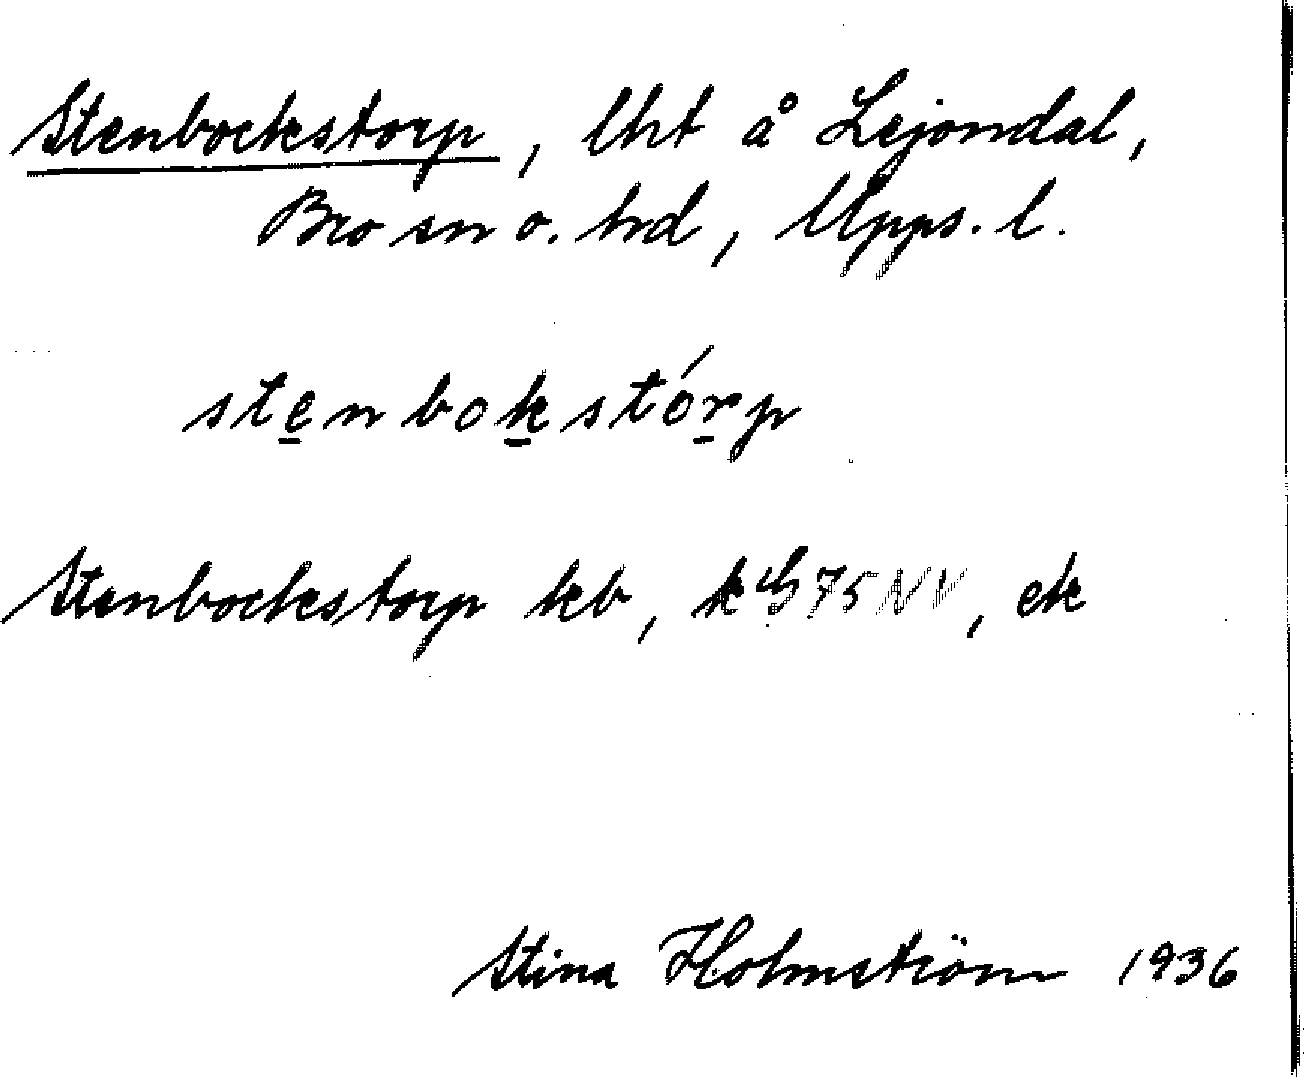 Stenbockstorp, lht å Lejondal,
Bro sn o. hd, Upps. l.
stenbokstórp
Stenbockstorp kb, k 75 NV, ek
Stina Holmström 1936